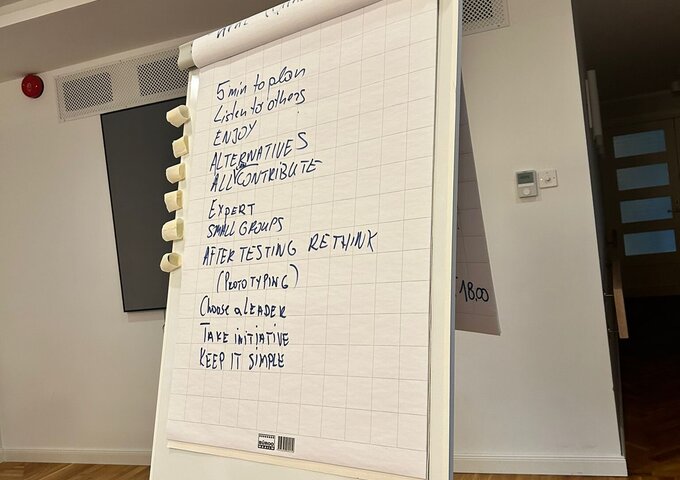 5 min to plan
Listen to others
ENJOY
ALTERNATIVES
ALL CONTRIBUTE
EXPERT
SMALL GROUPS
AFTER TESTING RETHINK
(PROTOTYPING)
Choose a LEADER
TAKE initiATIVE
KEEP IT SIMPLE
18,00